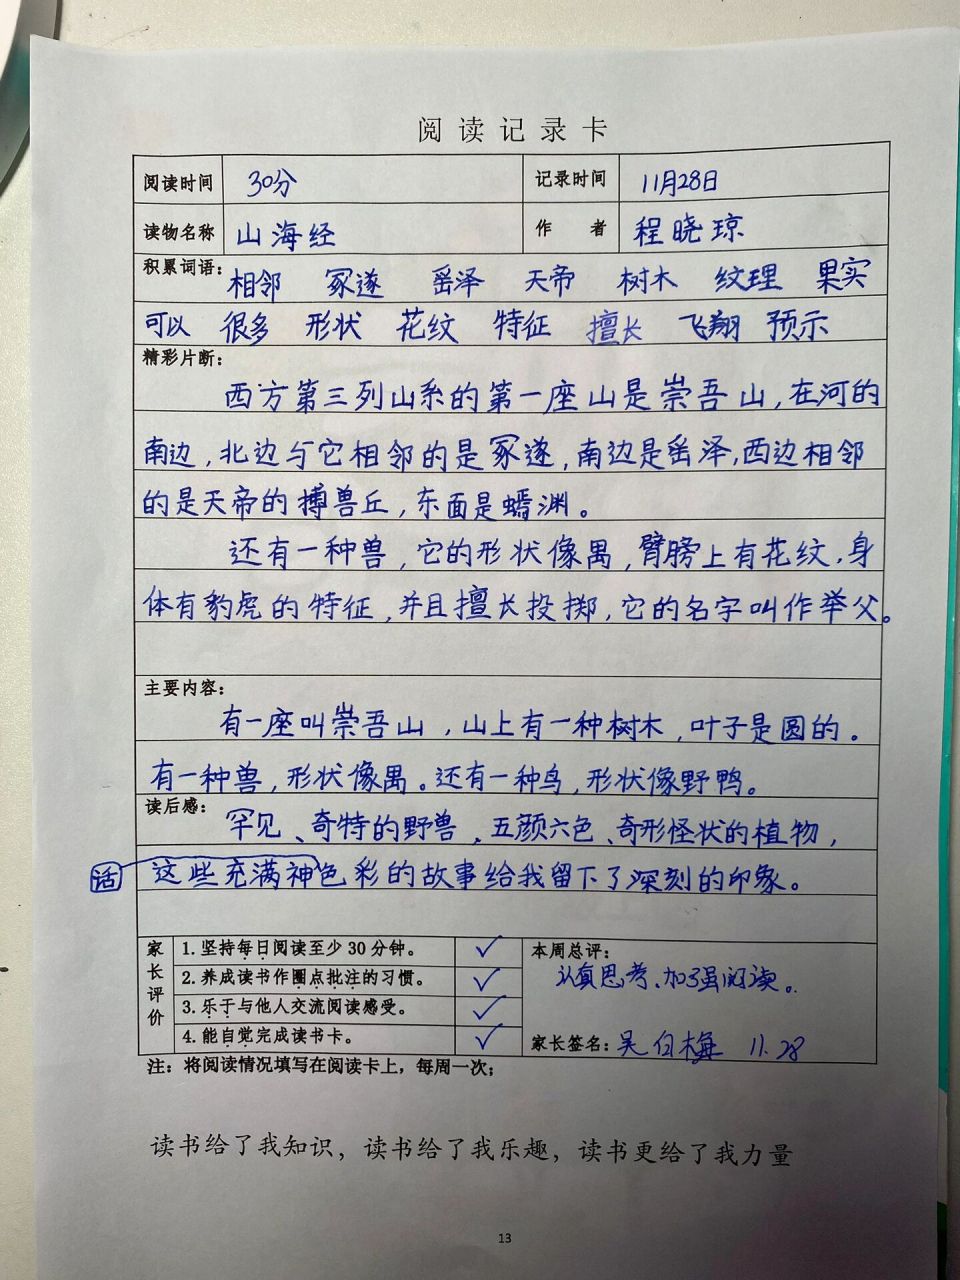 阅读记录卡
阅读时间 30分 记录时间 11月28日
读物名称 山海经 作者 程晓琼
积累词语: 相邻 冢遂 䍃泽 天帝 树木 纹理 果实
可以 很多 形状 花纹 特征 擅长 飞翔 预示
精彩片断:
西方第三列山系的第一座山是崇吾山,在河的
南边,北边与它相邻的是冢遂,南边是䍃泽,西边相邻
的是天帝的搏兽丘,东面是蠕渊。
还有一种兽,它的形状像禺,臂膀上有花纹,身
体有豹虎的特征,并且擅长投掷,它的名字叫作举父。
主要内容:
有一座叫崇吾山,山上有一种树木,叶子是圆的。
有一种兽,形状像禺。还有一种鸟,形状像野鸭。
读后感: 罕见、奇特的野兽、五颜六色、奇形怪状的植物,
话 这些充满神色彩的故事给我留下了深刻的印象。
家长评价
1.坚持每日阅读至少30分钟。 ✓
2.养成读书作圈点批注的习惯。 ✓
3.乐于与他人交流阅读感受。 ✓
4.能自觉完成读书卡。 ✓
本周总评:
认真思考、加强阅读。
家长签名: 吴白梅 11.28
注:将阅读情况填写在阅读卡上,每周一次;
读书给了我知识,读书给了我乐趣,读书更给了我力量
13